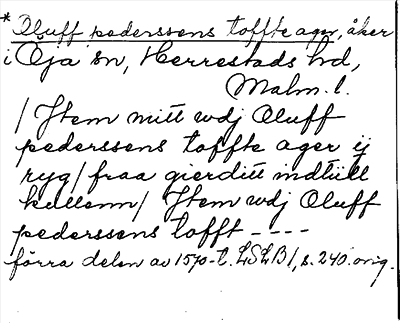 * Oluff pederssens toffte ager, åker
i Öja sn, Herrestads hd,
Malm. l.
/ Jtem mitt wdj Oluff
pederssens toffte ager ij
ryg / fraa gierditt indtiill
kullenn / Jtem wdj Oluff
pederssens tofft ----
förra delen av 1570-t. LSLB1, s. 240. orig.